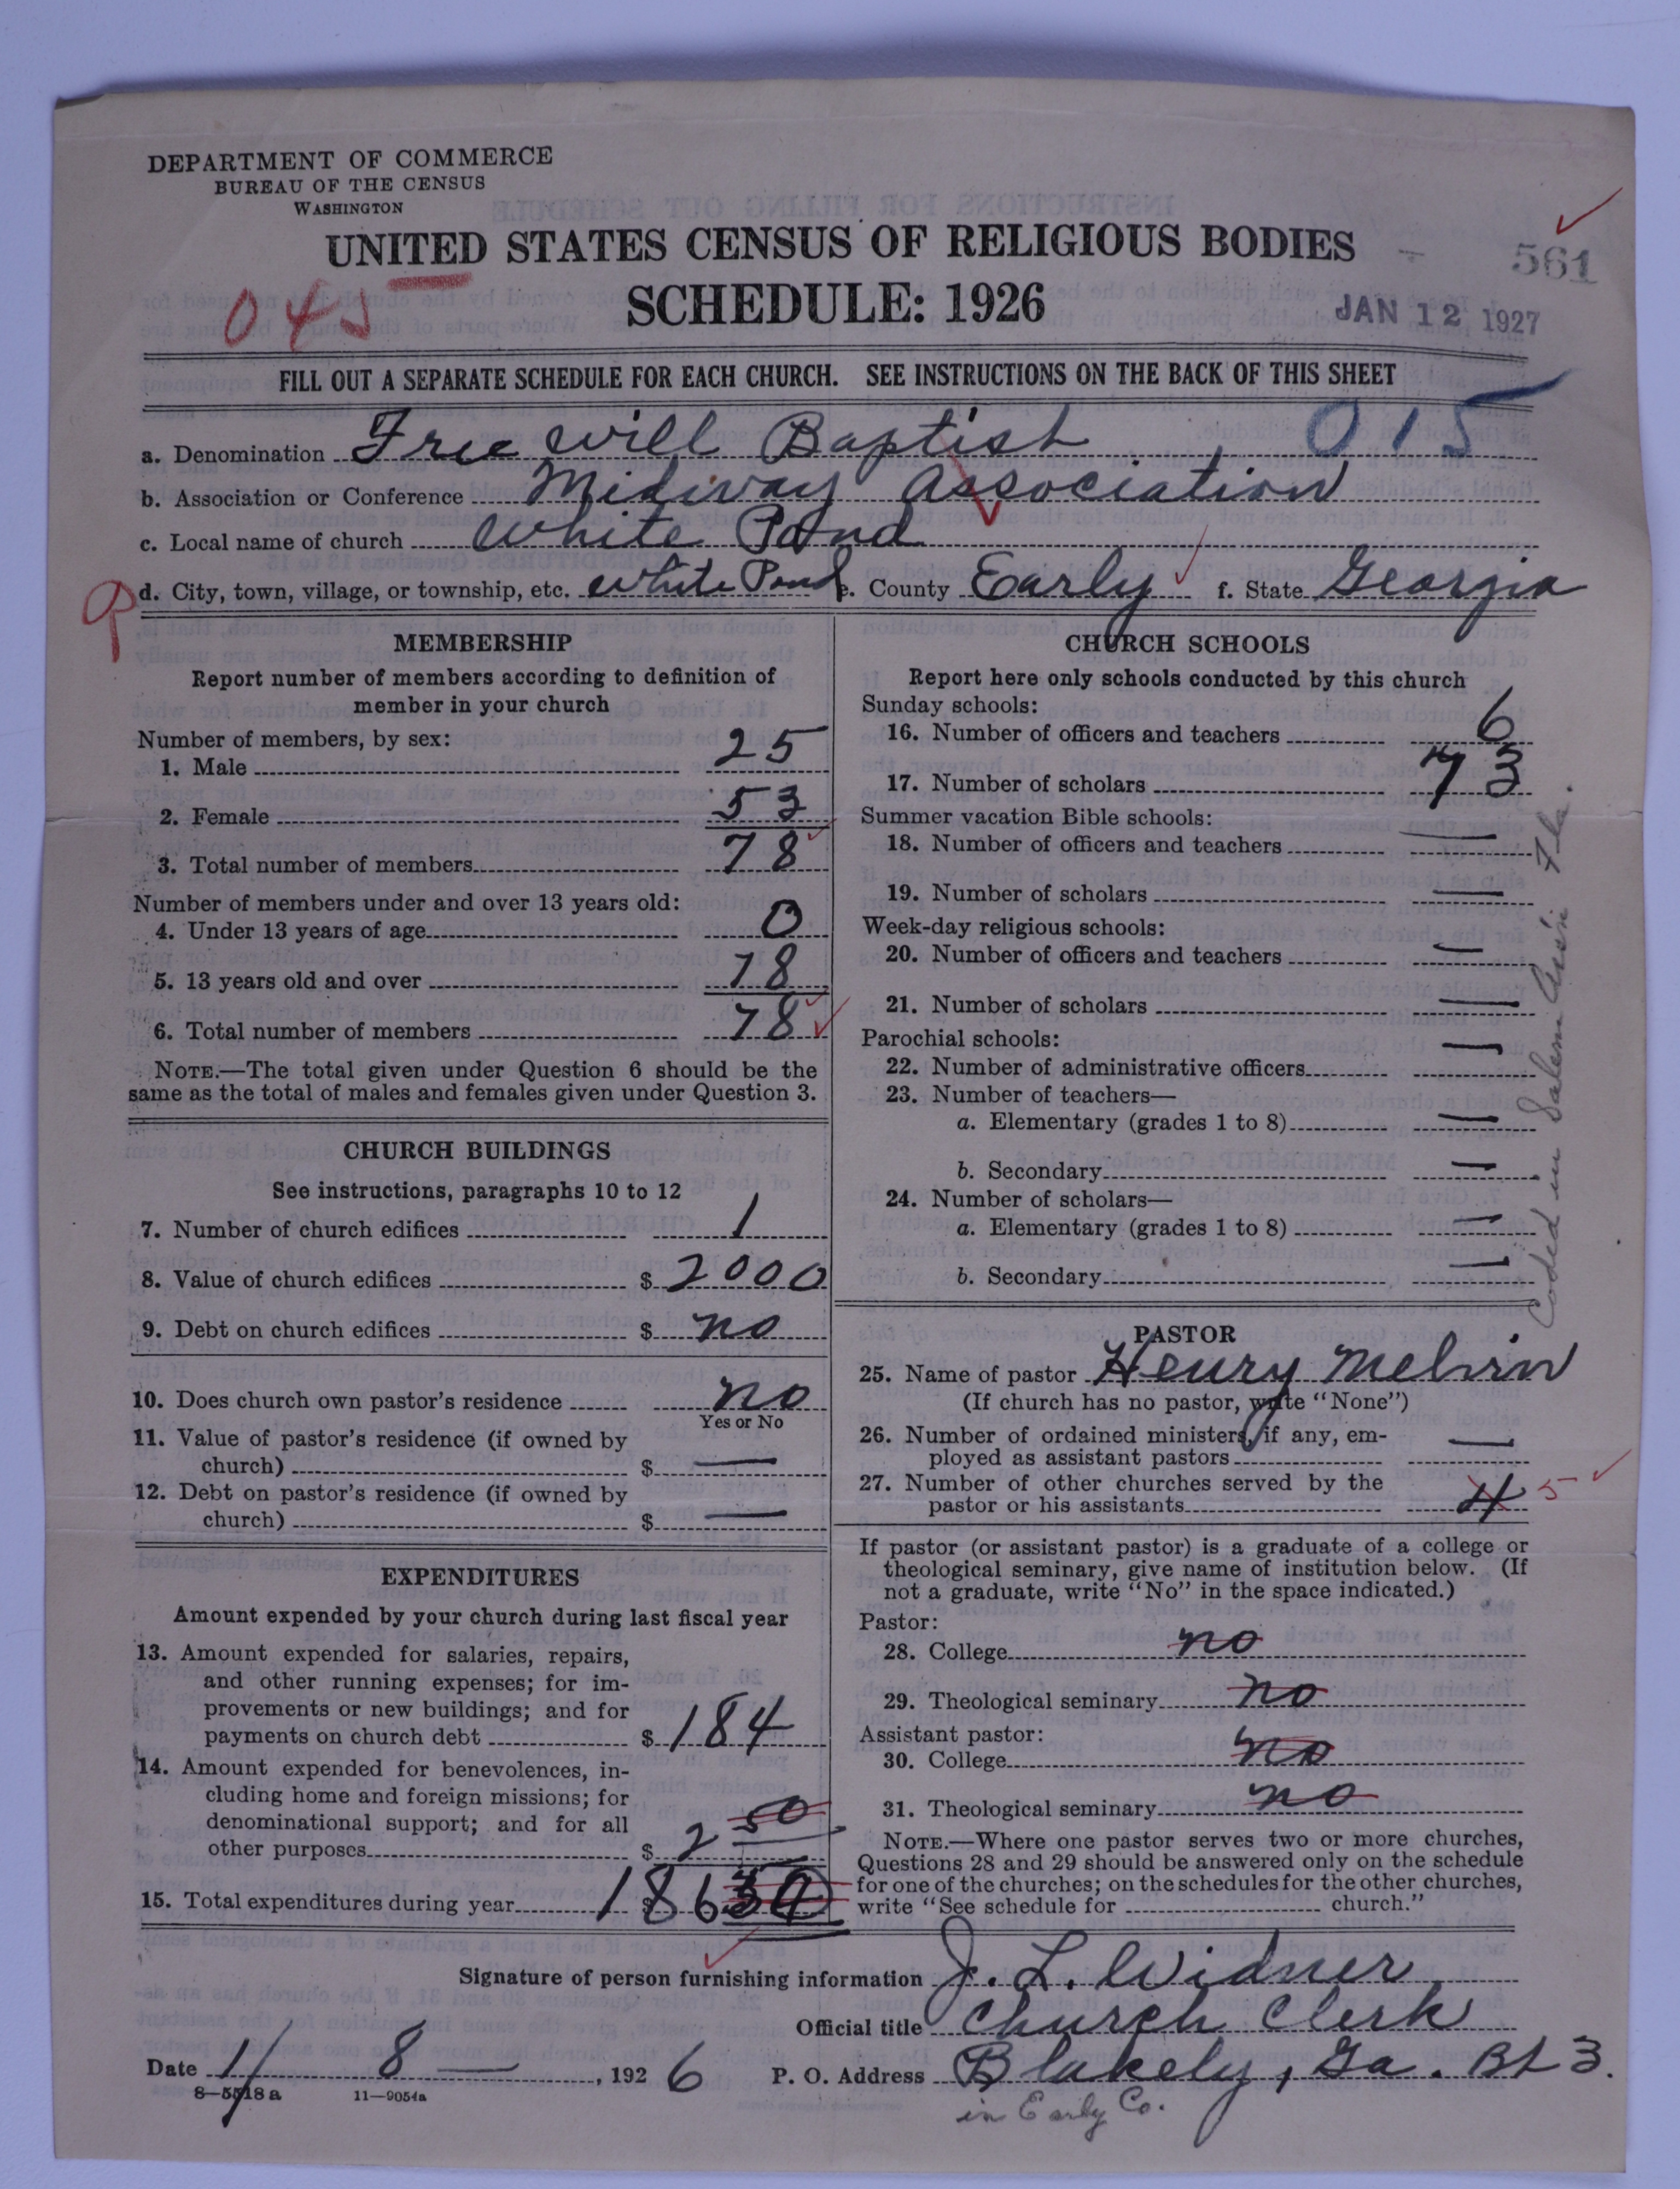 DEPARTMENT OF COMMERCE
BUREAU OF THE CENSUS
WASHINGTON
UNITED STATES CENSUS OF RELIGIOUS BODIES
561
SCHEDULE: 1926
045
JAN 12 1927
FILL OUT A SEPARATE SCHEDULE FOR EACH CHURCH. SEE INSTRUCTIONS ON THE BACK OF THIS SHEET
015
a. Denomination Free Will Baptist
b. Association or Conference Midway Association
c. Local name of church White Pond
d. City, town, village, or township, etc. White Pond e. County Early f. State Georgia
R
MEMBERSHIP
Report number of members according to definition of
member in your church
Number of members, by sex:
1. Male 25
2. Female 53
3. Total number of members 78
Number of members under and over 13 years old:
4. Under 13 years of age 0
5. 13 years old and over 78
6. Total number of members 78
NOTE.—The total given under Question 6 should be the
same as the total of males and females given under Question 3.
CHURCH BUILDINGS
See instructions, paragraphs 10 to 12
7. Number of church edifices 1
8. Value of church edifices $ 2000
9. Debt on church edifices $ no
10. Does church own pastor's residence no
Yes or No
11. Value of pastor's residence (if owned by
church) $ —
12. Debt on pastor's residence (if owned by
church) $ —
EXPENDITURES
Amount expended by your church during last fiscal year
13. Amount expended for salaries, repairs,
and other running expenses; for im-
provements or new buildings; and for
payments on church debt $ 184
14. Amount expended for benevolences, in-
cluding home and foreign missions; for
denominational support; and for all
other purposes $ 2 50
15. Total expenditures during year $ 186
CHURCH SCHOOLS
Report here only schools conducted by this church
Sunday schools:
16. Number of officers and teachers 6
17. Number of scholars 73
Summer vacation Bible schools:
18. Number of officers and teachers —
19. Number of scholars —
Week-day religious schools:
20. Number of officers and teachers —
21. Number of scholars —
Parochial schools:
22. Number of administrative officers —
23. Number of teachers—
a. Elementary (grades 1 to 8) —
b. Secondary —
24. Number of scholars—
a. Elementary (grades 1 to 8) —
b. Secondary —
Coded in Salem Ass'n. Fla.
PASTOR
25. Name of pastor Henry Melvin
(If church has no pastor, write "None")
26. Number of ordained ministers, if any, em-
ployed as assistant pastors —
27. Number of other churches served by the
pastor or his assistants 4 5
If pastor (or assistant pastor) is a graduate of a college or
theological seminary, give name of institution below. (If
not a graduate, write "No" in the space indicated.)
Pastor:
28. College no
29. Theological seminary no
Assistant pastor:
30. College no
31. Theological seminary no
NOTE.—Where one pastor serves two or more churches,
Questions 28 and 29 should be answered only on the schedule
for one of the churches; on the schedules for the other churches,
write "See schedule for church."
Signature of person furnishing information J. L. Widner
Official title Church Clerk
Date 1/ 8 — , 192 6 P. O. Address Blakely, Ga. Rt 3.
8—5518 a 11—9054a
in Early Co.